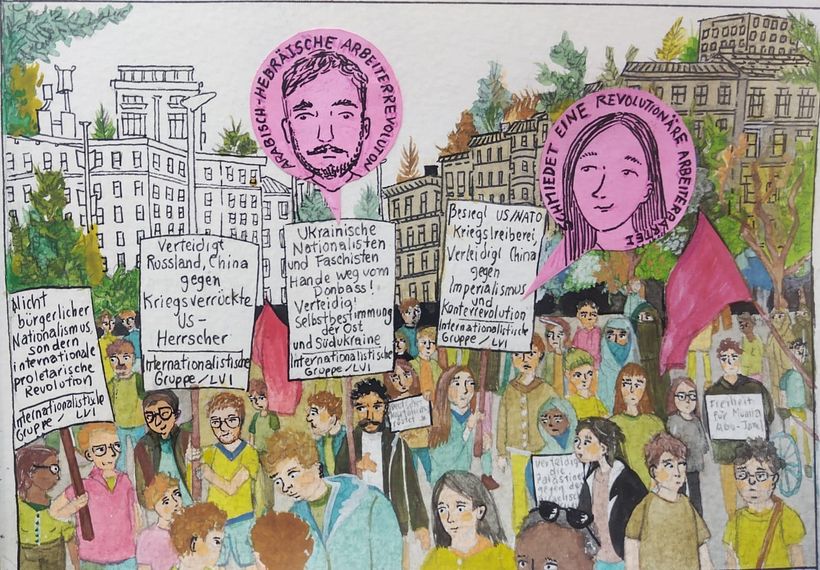 ARABISCH-HEBRÄISCHE ARBEITERREVOLUTION
SCHMIEDET EINE REVOLUTIONÄRE ARBEITERPARTEI
Nicht
bürgerlicher
Nationalismus,
sondern
internationale
proletarische
Revolution
Internationalistische
Gruppe / LVI
Verteidigt
Russland, China
gegen
Kriegsverrückte
US-
Herrscher
Internationalistische
Gruppe / LVI
Ukrainische
Nationalisten
und Faschisten
Hände weg vom
Donbass!
Verteidigt
Selbstbestimmung
der Ost
und Südukraine
Internationalistische
Gruppe / LVI
Besiegt US/NATO
Kriegstreiberei
Verteidigt China
gegen
Imperialismus
und
Konterrevolution
Internationalistische
Gruppe / LVI
Freiheit
für Mumia
Abu-Jamal
Verteidigt
die
Palästine
gegen de